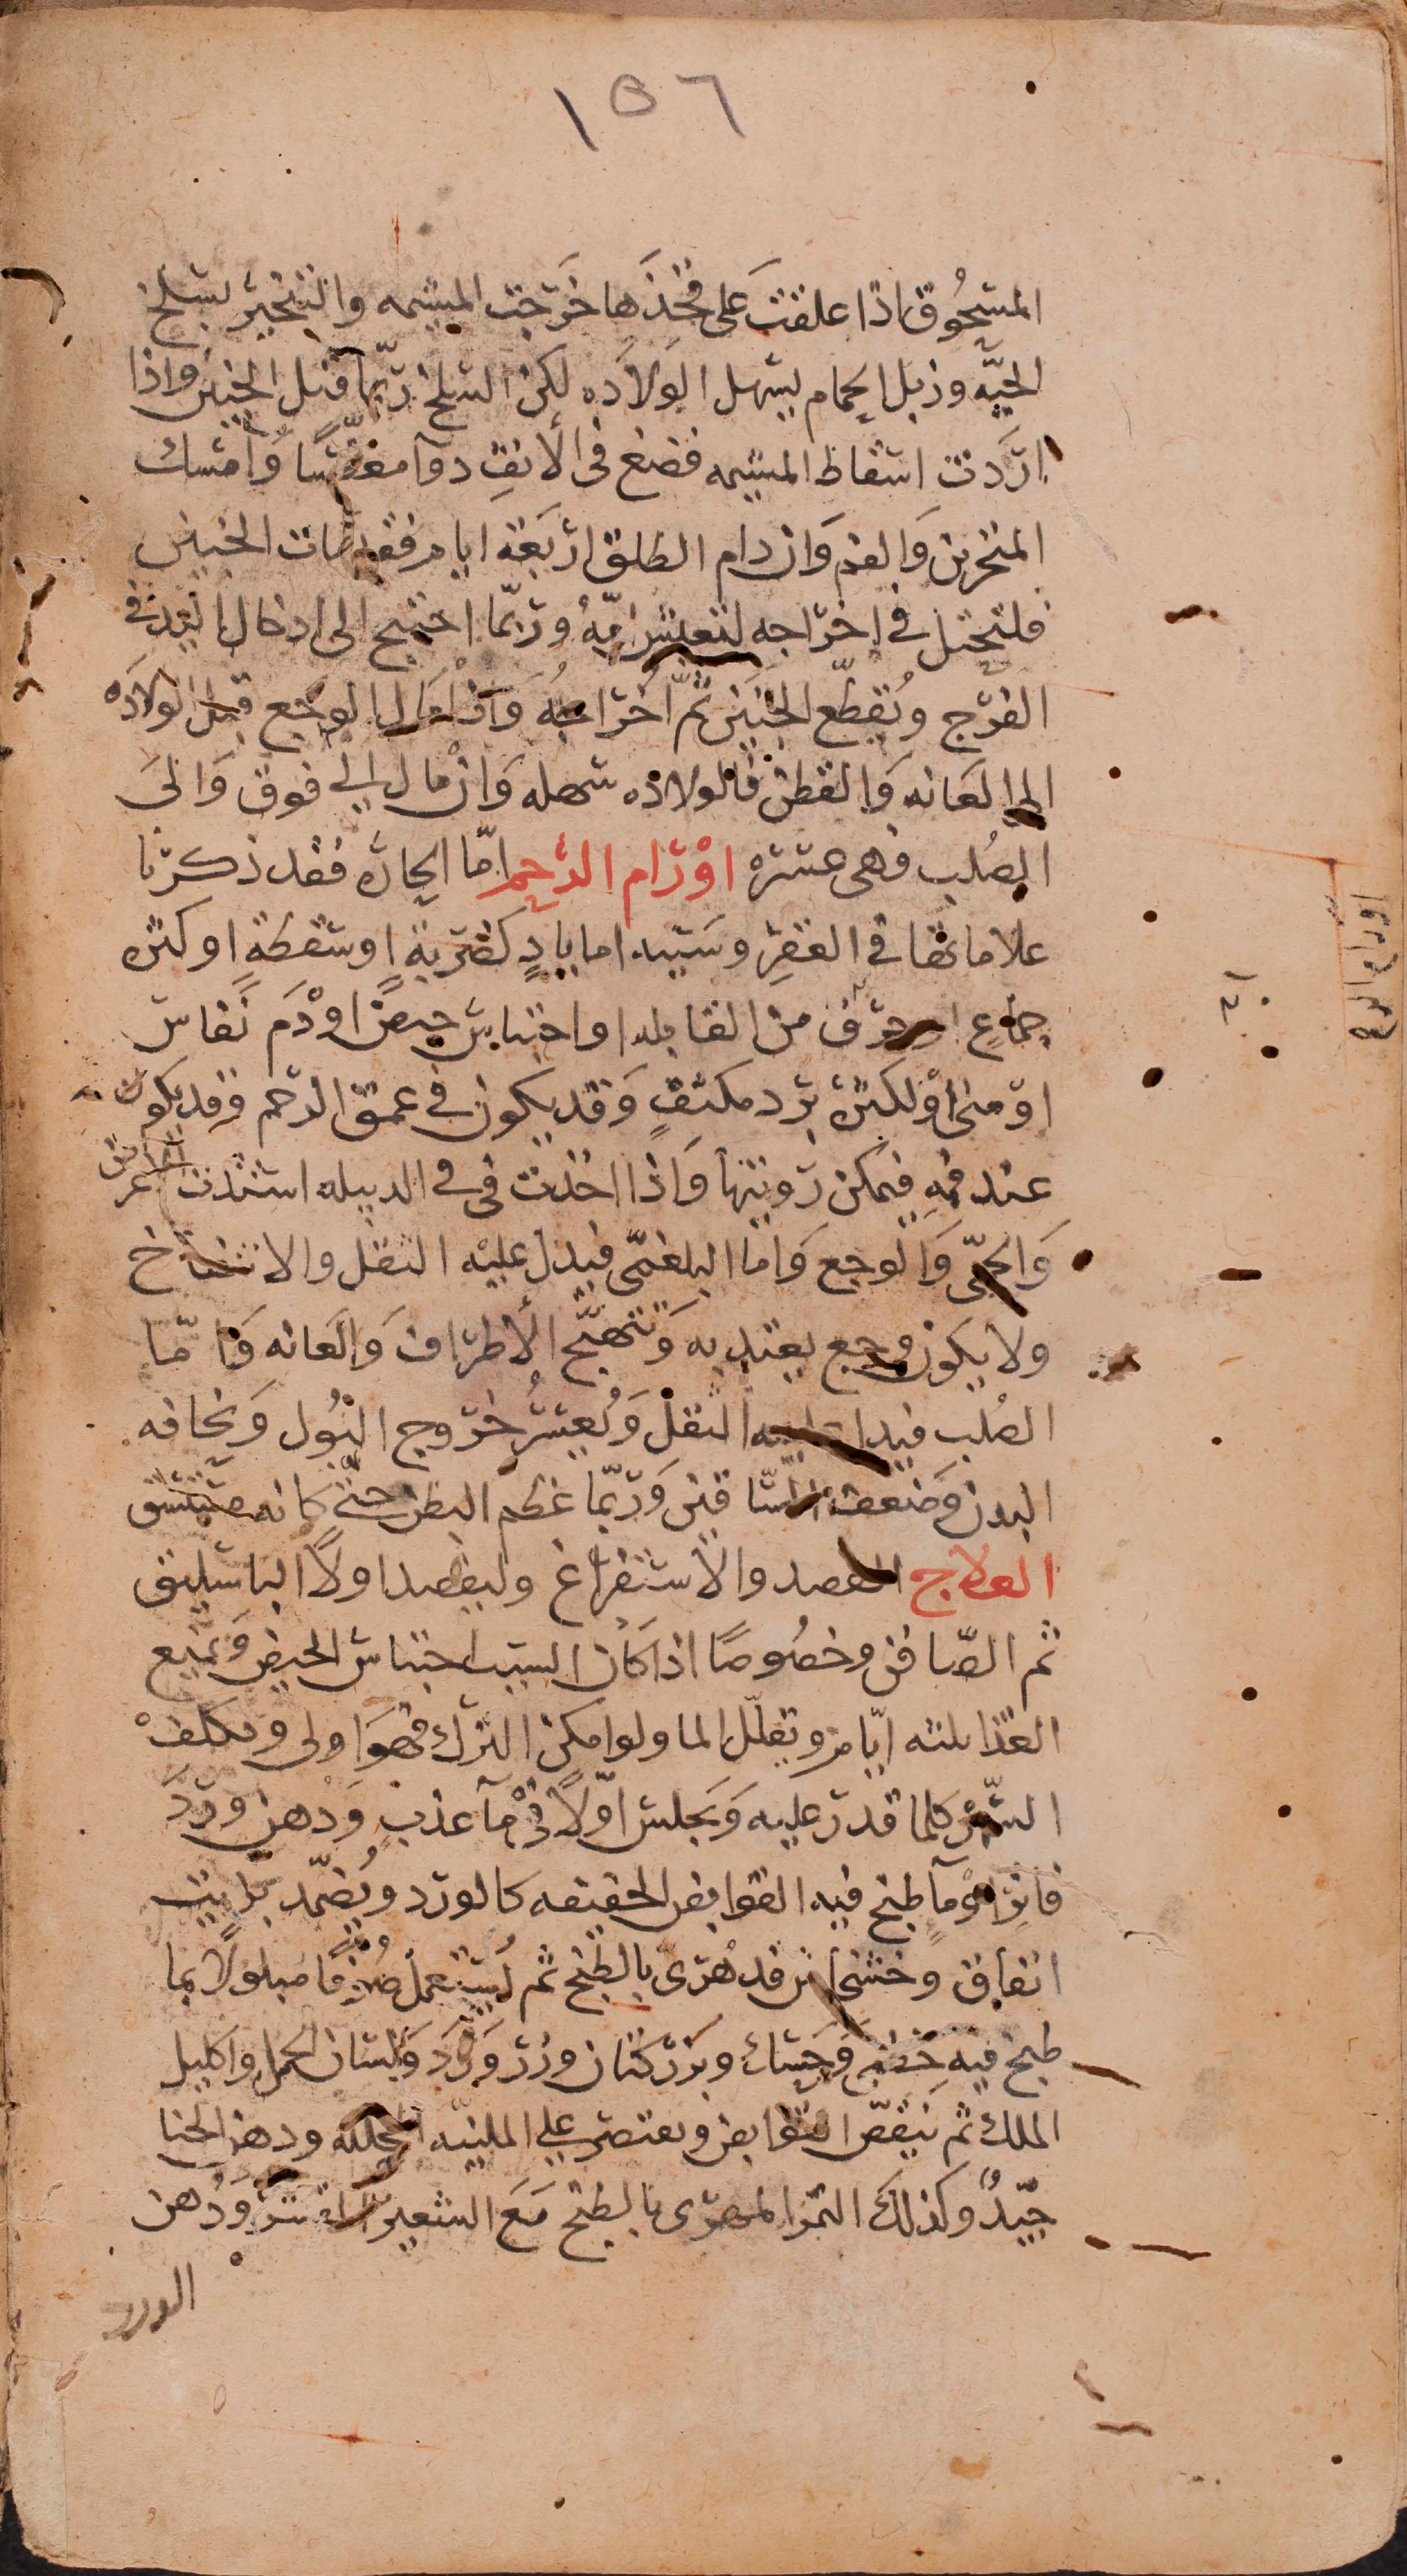 ١٥٦
المسحوق اذا علقت على فخذها خرجت المشيمه والتبخير بسلخ
الحيّه وزبل الحمام يسهل الولاده لكن السلخ ربّما قتل الجنين واذا
اردت اسقاط المشيمه فضع فى الأنف دوآ معطّسًا وامسك
المنخرين والفم وان دام الطلق اربعة ايام فقد مات الجنين
فلتحتل في اخراجه لتعيش امّه وربّما احتيج الى ادخال اليد في
الفرج وتقطّع الجنين ثمّ اخراجه واذا مال الوجع قبل الولاده
الى العانه والقطن فالولاده سهله وان مال الى فوق والى
الصلب فهى عسره اورام الرحم امّا الحارّه فقد ذكرنا
علاماتها في العقر وسببه اما بادٍ كضربةٍ او سقطةٍ او كثره
جماعٍ او خرق من القابله او احتباس حيض او دم نفاس
او منى او لكثرة برد مكثف وقد يكون في عمق الرحم وقد يكون
عند فمه فيمكن رويتها واذا اخذت في الدبيله استدت الاعراض
والحمّى والوجع واما البلغمّى فيدل عليه الثقل والانتفاخ
ولا يكون وجع يعتد به وتتهبّج الأطراف والعانه وامّا
الصلب فيدل عليه الثقل وتعسّر خروج البول ونحافه
البدن وضعف السّاقين وربّما عظم البطن حتى كانه مستسق
العلاج الفصد والاستفراغ وليفصد اولاً الباسليق
ثم الصّافن وخصوصًا اذا كان السبب احتباس الحيض ويمنع
الغذا ثلثه ايّام ويقلّل الما ولو امكن الترك فهو اولى ويكلف
السّهر كلما قدر عليه ويجلس اوّلاً في مآ عذب ودهن ورد
فاتر او مآ طبخ فيه القوابض الخفيفه كالورد ويضمّد بزيت
انفاق وخشخاش قد هرّى بالطبخ ثم يستعمل صوفًا مبلولاً بما
طبخ فيه خطمى وحسك وبزر كتان وورد ولسان الحمل واكليل
الملك ثم ينقص القوابض ويقتصر على المليّنه المحلله ودهن الحنا
جيّدٌ وكذلك التمر المهرّى بالطبخ مع الشعير المقشر ودهن
الورد